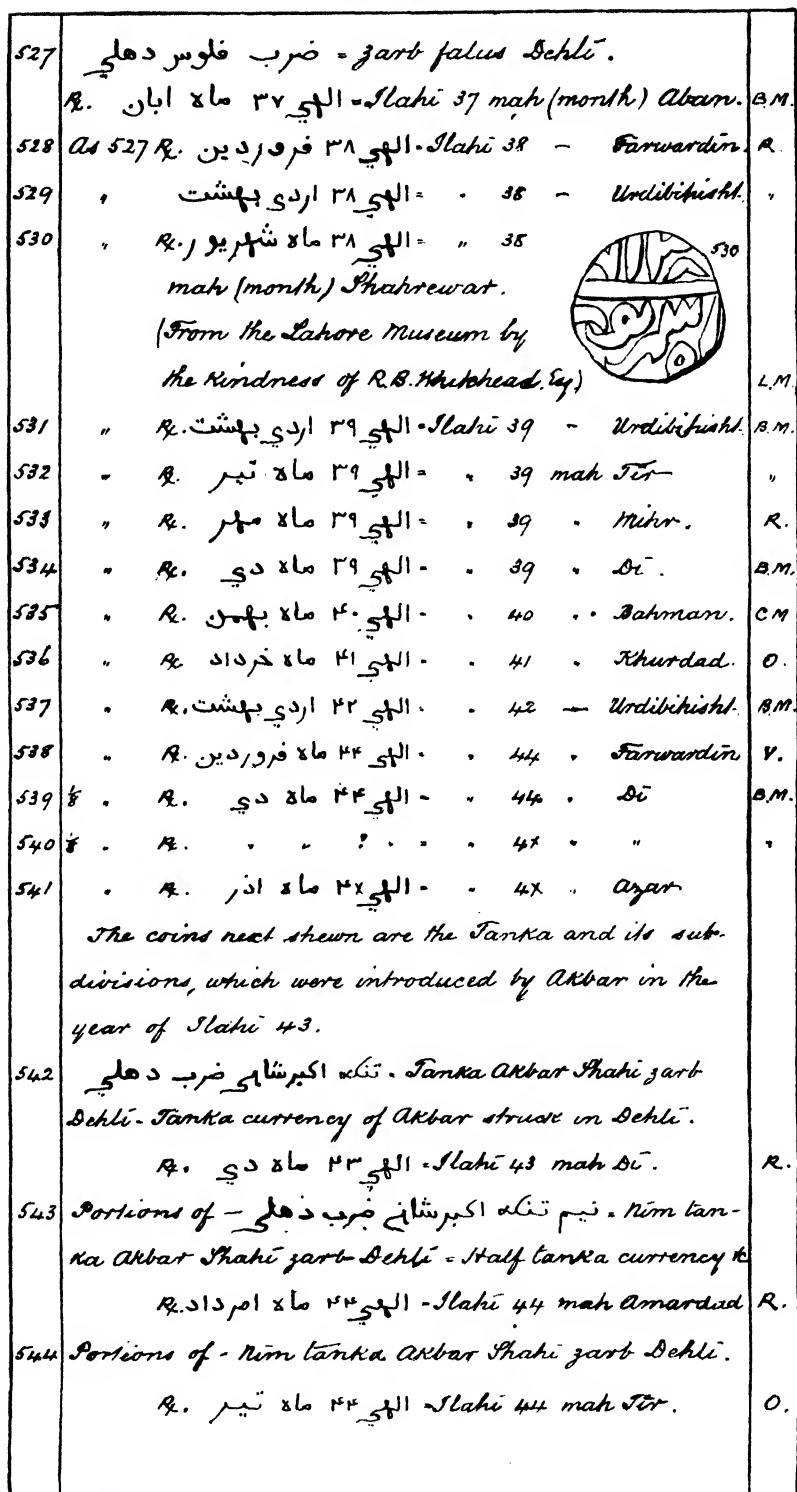 527 ضرب فلوس دهلي = zarb falus Dehli.
R. الهي ٣٧ ماه ابان = Ilahi 37 mah (month) Aban. B.M.
528 As 527 R. الهي ٣٨ فروردين = Ilahi 38 – Farwardin. R.
529 " الهي ٣٨ اردي بهشت = " 38 – Urdibihisht. "
530 " R. الهي ٣٨ ماه شهريور = " 38
530
mah (month) Shahrewar.
(From the Lahore Museum by
the kindness of R.B. Whitehead, Esq) L.M.
531 " R. الهي ٣٩ اردي بهشت = Ilahi 39 – Urdibihisht. B.M.
532 " R. الهي ٣٩ ماه تير = " 39 mah Tir "
533 " R. الهي ٣٩ ماه مهر = " 39 " Mihr. R.
534 " R. الهي ٣٩ ماه دي = " 39 " Di. B.M.
535 " R. الهي ۴٠ ماه بهمن = " 40 " Bahman. C M
536 " R. الهي ۴١ ماه خرداد = " 41 " Khurdad. O.
537 " R. الهي ۴٢ اردي بهشت = " 42 – Urdibihisht. B.M.
538 " R. الهي ۴۴ ماه فروردين = " 44 " Farwardin V.
539 ⅛ " R. الهي ۴۴ ماه دي = " 44 " Di B.M.
540 ⅛ " R. " " ? " = " 4x " " "
541 " R. الهي ۴x ماه اذر = " 4x " Azar
The coins next shewn are the Tanka and its sub-
divisions, which were introduced by Akbar in the
year of Ilahi 43.
542 تنكه اكبرشاهي ضرب دهلي = Tanka Akbar Shahi zarb
Dehli = Tanka currency of Akbar struck in Dehli.
R. الهي ۴٣ ماه دي = Ilahi 43 mah Di. R.
543 Portions of – نيم تنكه اكبرشاهي ضرب دهلي = Nim tan-
ka Akbar Shahi zarb Dehli = Half tanka currency &c
R. الهي ۴۴ ماه امرداد = Ilahi 44 mah Amardad R.
544 Portions of – Nim tanka Akbar Shahi zarb Dehli.
R. الهي ۴۴ ماه تير = Ilahi 44 mah Tir. O.